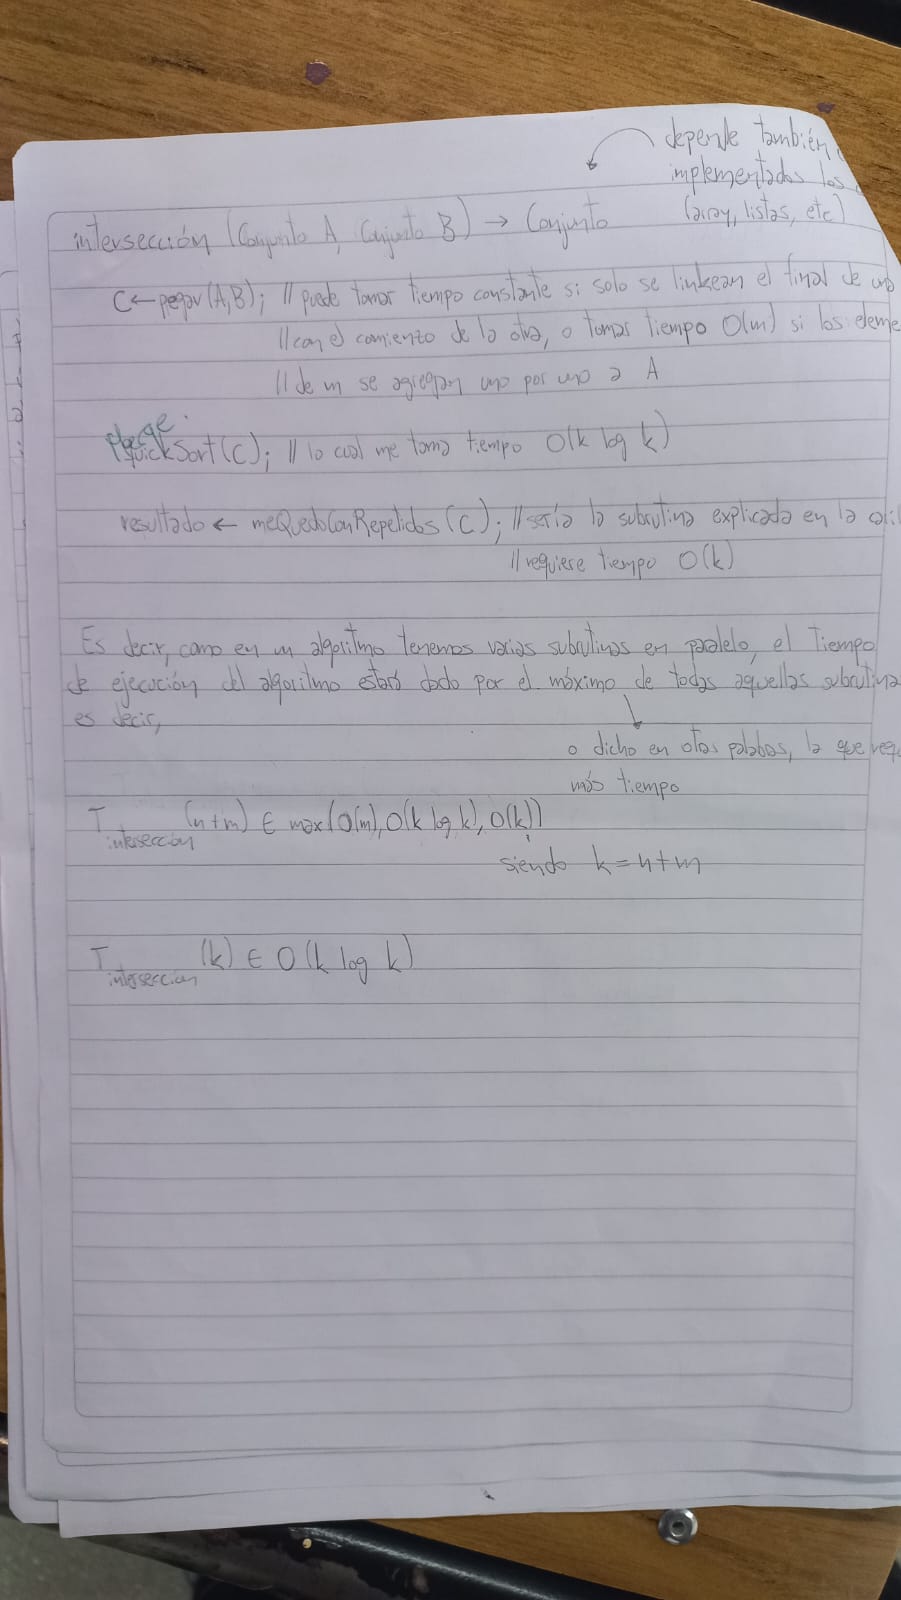 depende también
implementados los
(array, listas, etc)
intersección (Conjunto A, Conjunto B) → Conjunto
C ← pegar (A,B); // puede tomar tiempo constante si solo se linkean el final de uno
// con el comienzo de la otra, o tomar tiempo O(m) si los eleme
// de m se agregan uno por uno a A
Merge
quickSort (C); // lo cual me toma tiempo O(k log k)
resultado ← meQuedoConRepetidos (C); // sería la subrutina explicada en la
// requiere tiempo O(k)
Es decir, como en un algoritmo tenemos varias subrutinas en paralelo, el Tiempo
de ejecución del algoritmo estará dado por el máximo de todas aquellas subrutina
es decir,
o dicho en otras palabras, la que requ
más tiempo
T intersección (n+m) ∈ max (O(m), O(k log k), O(k))
siendo k = n+m
T interseccion (k) ∈ O(k log k)